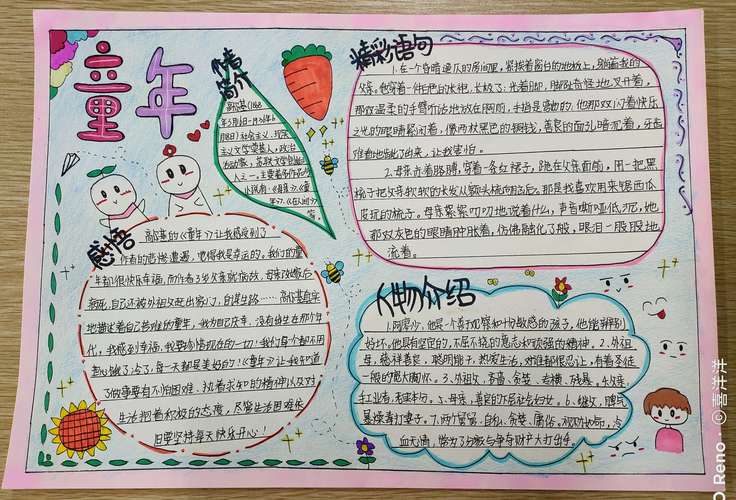 童年
作者
简介
高尔基(1868
年3月16日-1936年6
月18日)社会主义、现实
主义文学奠基人,政治
活动家,苏联文学创始
人之一,主要著作有
《童
年》、《在人间》
等。
精彩语句
1.在一个昏暗
的房间里,紧挨着窗口的地板上,躺着我的
父亲。他穿着一件白色的衣
光着脚,脚趾奇怪地叉开着,
那双温柔的手臂
地放在胸前,手指是弯曲的。他那双闪着快乐
之光的眼睛紧闭着,像两枚黑色的铜钱,善良的面孔暗沉着,牙齿
难看地龇了出来,让我害怕。
2.母亲
着胳膊,穿着一条红裙子,跪在父亲面前,用一把黑
梳子把父亲软软的长发从额头梳向脑后,那是我喜欢用来锯西瓜
皮玩的梳子,母亲絮絮叨叨地说着什么,声音嘶哑低沉,她
那双灰色的眼睛肿胀着,仿佛融化了般,眼泪一股股地
流着。
感悟
高尔基的《童年》让我感受到了
作者的悲惨遭遇,也得我是幸运的。我们的童
年都很快乐幸福,而作者3岁父亲就病故,母亲改嫁后
病死,自己还被外祖父赶出家门,自谋生路……高尔基真实
地描述着自己苦难的童年,我为自己庆幸,没有诞生在那个年
代,我感到幸福,我要珍惜现在的一切!我们每个都不用
担心饿了、冷了,每一天都是美好的!《童年》让我知道
了做事要有不怕困难、执着求知的精神以及对
生活抱着积极的态度,尽管生活困难依
旧要坚持每天快乐开心!
人物介绍
1.阿廖沙,他是一个善于观察和十分敏感的孩子,他能辨别
好坏。他具有坚定的,不屈不挠的意志和顽强的精神。2.外祖
母,慈祥善良,聪明能干,热爱生活,对谁都很忍让,有着圣徒
一般的宽大胸怀。3.外祖父,吝啬、贪婪、专横、残暴。4.
5.母亲,善良的
妇女。6.继父,脾气
暴躁毒打妻子。7.两个舅舅,自私、贪婪、庸俗,
冷
血无情,常为了分家与争夺财产大打出手。
Reno
©喜洋洋